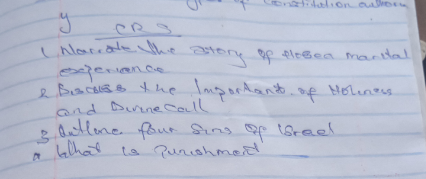 of Constitution
y
CRS
1 Narrate the story of Hosea marital
experience
2 Discuss the Important of Holiness
and Divine call
3 Outline four Sins of Israel
4 What is Punishment